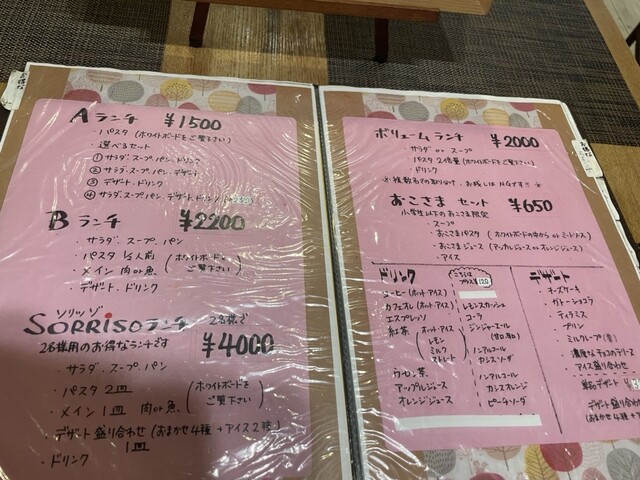 Aランチ ¥1500
・パスタ(ホワイトボードをご覧下さい)
・選べるセット
①サラダ.スープ.パン.ドリンク
②サラダ.スープ.パン.デザート
③デザート.ドリンク
④サラダ.スープ.パン.デザート.ドリンク
Bランチ ¥2200
・サラダ.スープ.パン
・パスタ ½人前
・メイン 肉or魚
(ホワイトボードをご覧下さい)
・デザート.ドリンク
ソリッゾ
SORRISOランチ 2名様で
¥4000
2名様用のお得なランチです
・サラダ.スープ.パン
・パスタ2皿
・メイン1皿 肉or魚.
(ホワイトボードをご覧下さい)
・デザート盛り合わせ(おまかせ4種+アイス2種)
1皿
・ドリンク
ボリュームランチ ¥2000
・サラダ or スープ
・パスタ2倍量(ホワイトボードをご覧下さい)
・ドリンク
おこさま セット ¥650
小学生以下のおこさま限定
・スープ
・おこさまパスタ(ホワイトボードの中から or ミートソース)
・おこさまジュース(アップルジュースorオレンジジュース)
・アイス
ドリンク
こちらは
プラス¥120
コーヒー(ホット・アイス)
カフェオレ(ホット・アイス)
エスプレッソ
紅茶(ホット・アイス
レモン
ミルク
ストレート)
ウーロン茶
アップルジュース
オレンジジュース
レモンスカッシュ
コーラ
ジンジャーエール
ノンアルコール
カシスソーダ
ノンアルコール
カシスオレンジ
ピーチソーダ
デザート
・チーズケーキ
・ガトーショコラ
・ティラミス
・プリン
・ミルクレープ
・濃厚なチョコのテリーヌ
・アイス盛り合わせ
単品デザート
デザート盛り合わせ
(おまかせ4種+アイス